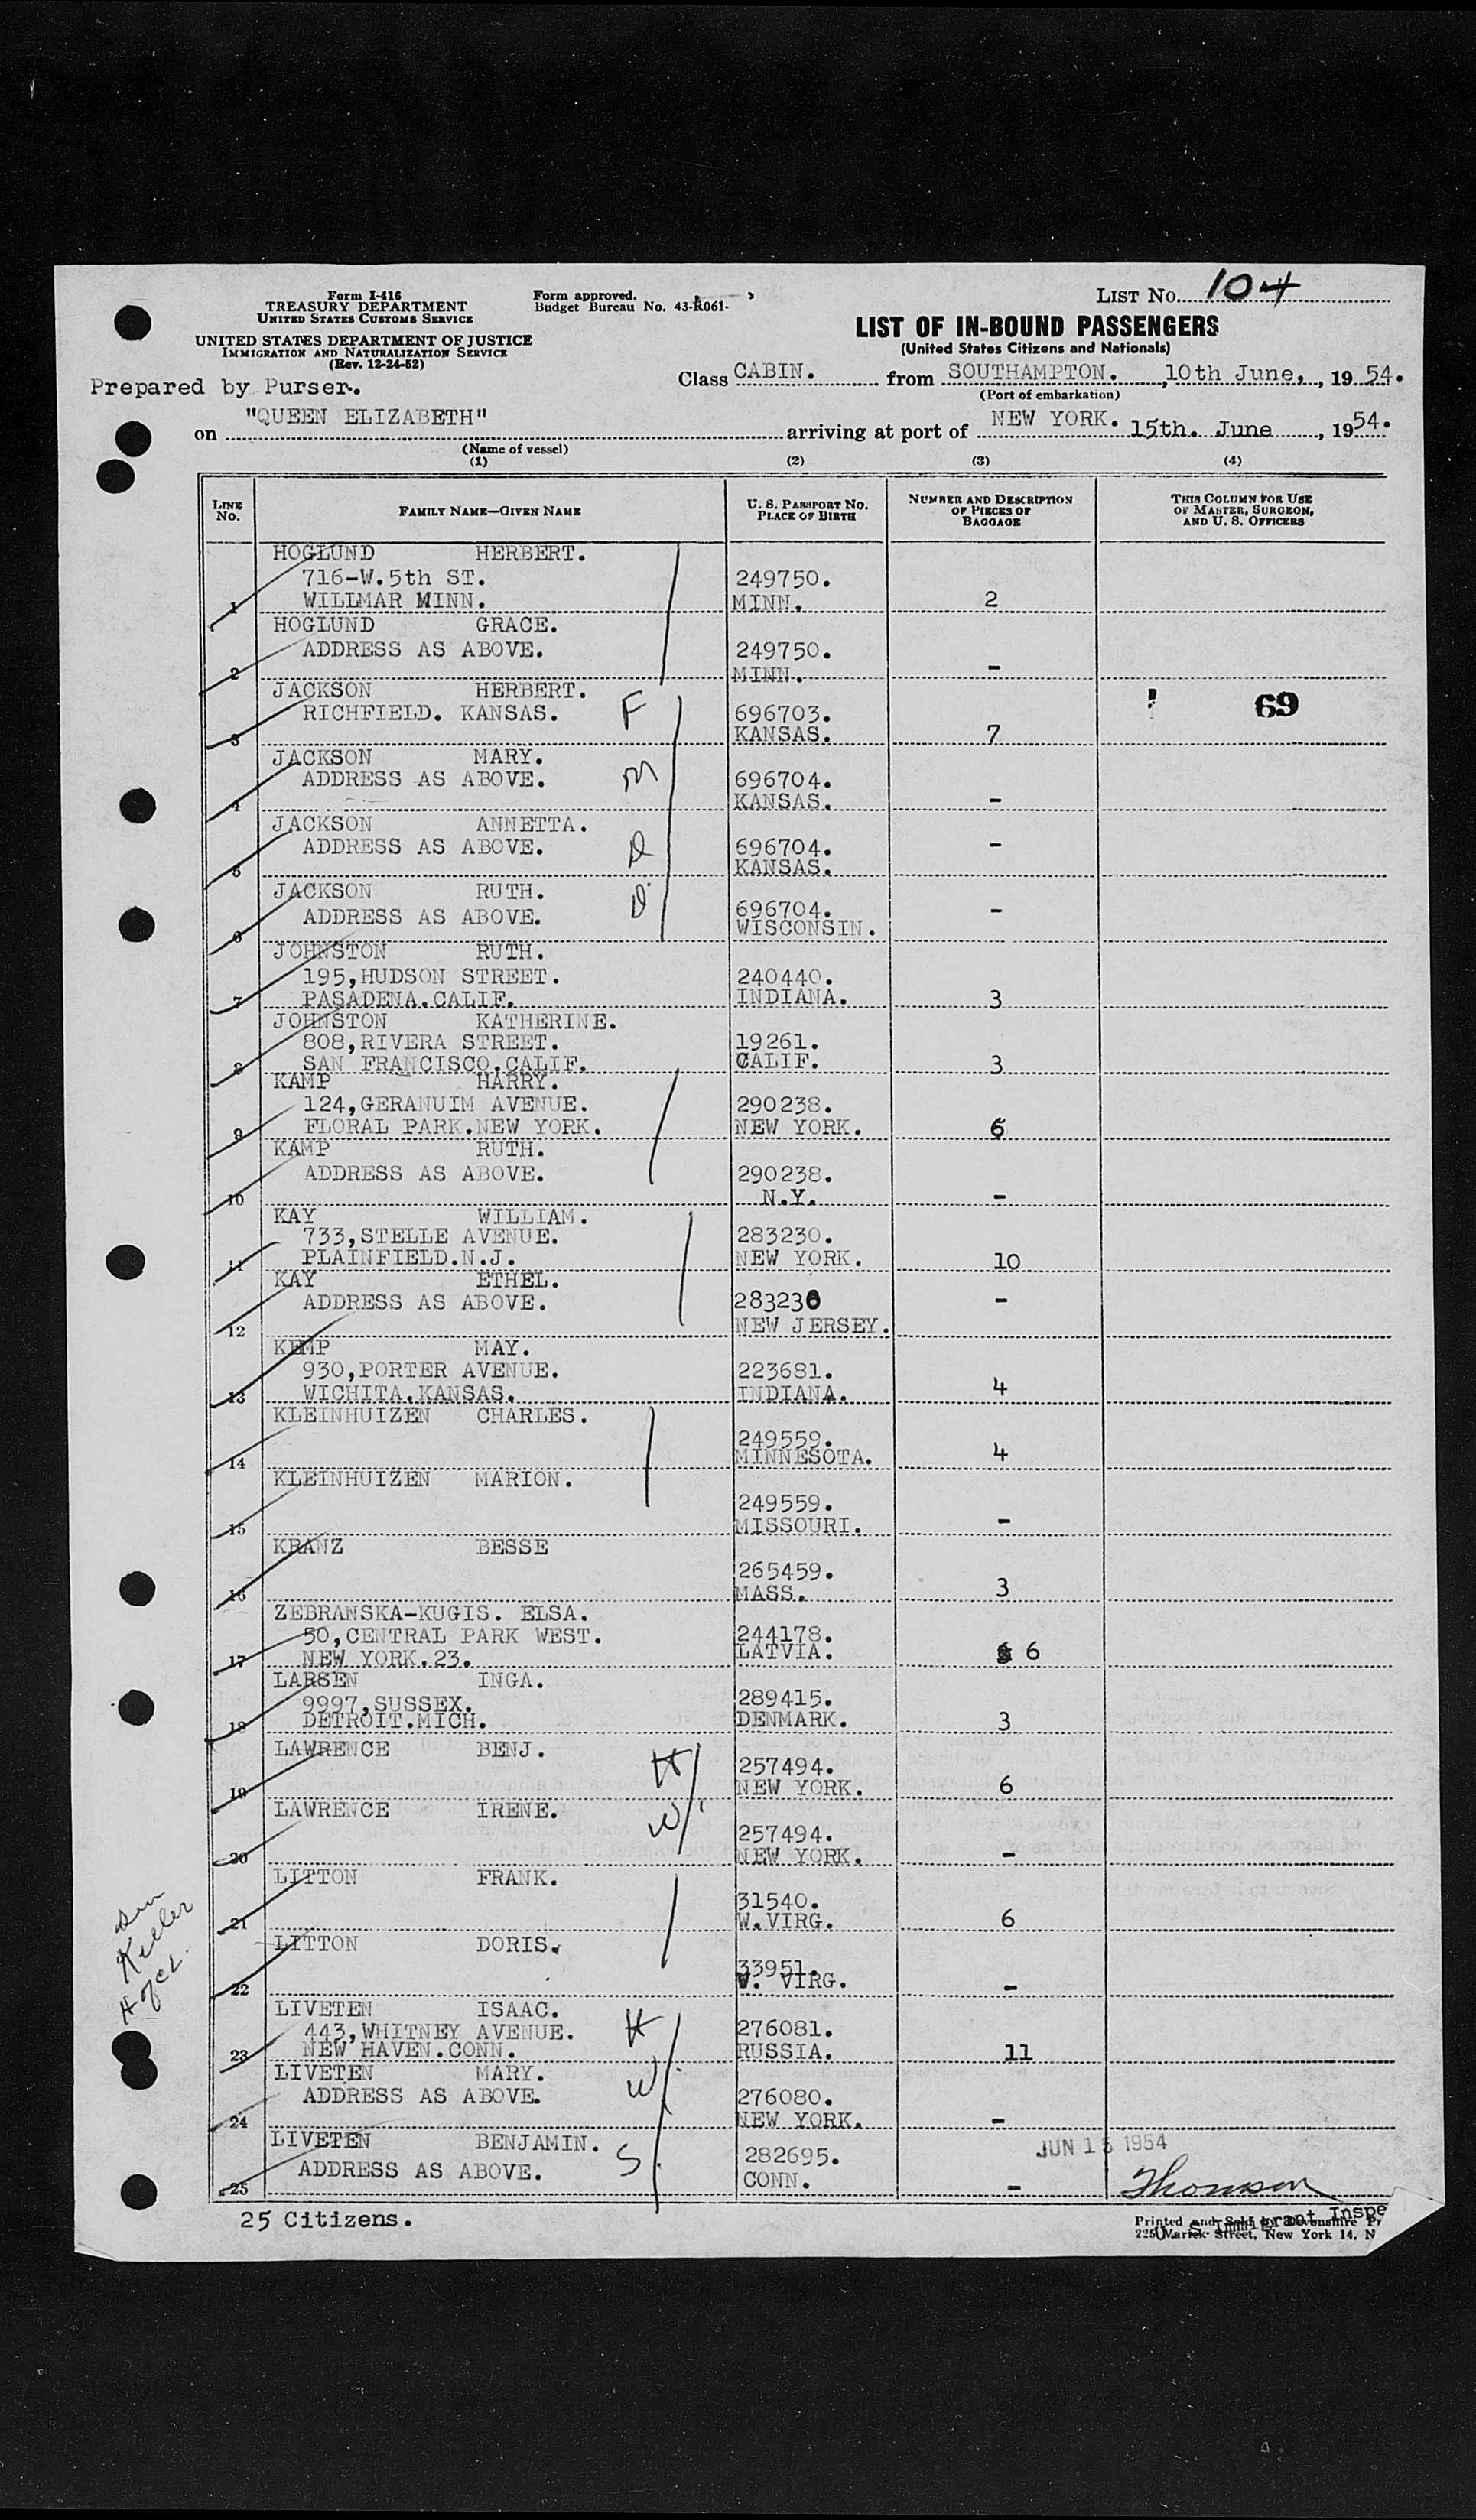 Form I-416
TREASURY DEPARTMENT
UNITED STATES CUSTOMS SERVICE
UNITED STATES DEPARTMENT OF JUSTICE
IMMIGRATION AND NATURALIZATION SERVICE
(Rev. 12-24-52)
Prepared by Purser.
Form approved.
Budget Bureau No. 43-R061-
LIST NO. 104
LIST OF IN-BOUND PASSENGERS
(United States Citizens and Nationals)
Class CABIN. from SOUTHAMPTON. , 10th June, , 19 54.
(Port of embarkation)
on "QUEEN ELIZABETH" arriving at port of NEW YORK. 15th. June , 19 54.
(Name of vessel)
(1) (2) (3) (4)
LINE NO. FAMILY NAME—GIVEN NAME U. S. PASSPORT NO. PLACE OF BIRTH NUMBER AND DESCRIPTION OF PIECES OF BAGGAGE THIS COLUMN FOR USE OF MASTER, SURGEON, AND U. S. OFFICERS
HOGLUND HERBERT.
716-W.5th ST. 249750.
1 WILLMAR MINN. MINN. 2
HOGLUND GRACE.
ADDRESS AS ABOVE. 249750.
2 MINN. -
JACKSON HERBERT.
RICHFIELD. KANSAS. F 696703. 69
3 KANSAS. 7
JACKSON MARY.
ADDRESS AS ABOVE. M 696704.
4 KANSAS. -
JACKSON ANNETTA.
ADDRESS AS ABOVE. D 696704. -
5 KANSAS.
JACKSON RUTH. D.
ADDRESS AS ABOVE. 696704. -
6 WISCONSIN.
JOHNSTON RUTH.
195,HUDSON STREET. 240440.
7 PASADENA.CALIF. INDIANA. 3
JOHNSTON KATHERINE.
808,RIVERA STREET. 19261.
8 SAN FRANCISCO.CALIF. CALIF. 3
KAMP HARRY.
124,GERANUIM AVENUE. 290238.
9 FLORAL PARK.NEW YORK. NEW YORK. 6
KAMP RUTH.
ADDRESS AS ABOVE. 290238.
10 N.Y. -
KAY WILLIAM.
733,STELLE AVENUE. 283230.
11 PLAINFIELD.N.J. NEW YORK. 10
KAY ETHEL.
ADDRESS AS ABOVE. 283230 -
12 NEW JERSEY.
KEMP MAY.
930,PORTER AVENUE. 223681.
13 WICHITA.KANSAS. INDIANA. 4
KLEINHUIZEN CHARLES.
249559.
14 MINNESOTA. 4
KLEINHUIZEN MARION.
249559.
15 MISSOURI. -
KRANZ BESSE
265459.
16 MASS. 3
ZEBRANSKA-KUGIS. ELSA.
50,CENTRAL PARK WEST. 244178.
17 NEW YORK.23. LATVIA. 6
LARSEN INGA.
9997,SUSSEX. 289415.
18 DETROIT.MICH. DENMARK. 3
LAWRENCE BENJ. H
257494.
19 NEW YORK. 6
LAWRENCE IRENE. W
257494.
20 NEW YORK. -
LITTON FRANK.
31540.
21 W.VIRG. 6
LITTON DORIS.
33951.
22 VIRG. -
LIVETEN ISAAC.
443,WHITNEY AVENUE. H 276081.
23 NEW HAVEN.CONN. RUSSIA. 11
LIVETEN MARY.
ADDRESS AS ABOVE. W 276080.
24 NEW YORK. -
LIVETEN BENJAMIN. JUN 15 1954
ADDRESS AS ABOVE. S 282695.
25 CONN. - Thomson
25 Citizens.
U. S. Immigrant Inspe
Printed and Sold by Devonshire P
225 Varick Street, New York 14, N
Keller